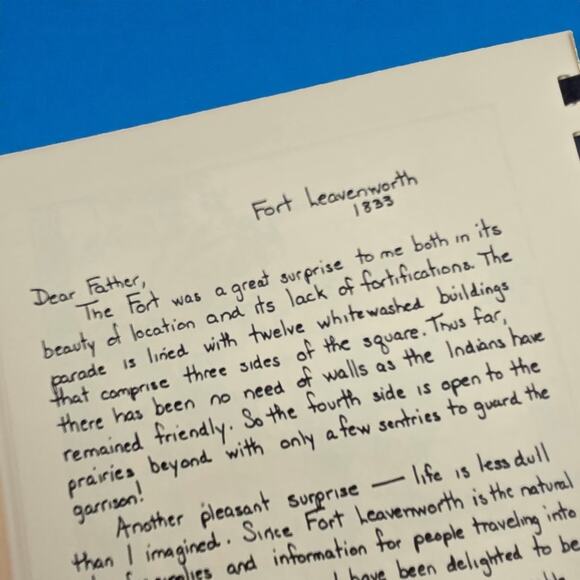 Fort Leavenworth
1833
Dear Father,
The Fort was a great surprise to me both in its
beauty of location and its lack of fortifications. The
parade is lined with twelve whitewashed buildings
that comprise three sides of the square. Thus far,
there has been no need of walls as the Indians have
remained friendly. So the fourth side is open to the
prairies beyond with only a few sentries to guard the
garrison!
Another pleasant surprise — life is less dull
than I imagined. Since Fort Leavenworth is the natural
and information for people traveling into
have been delighted to be